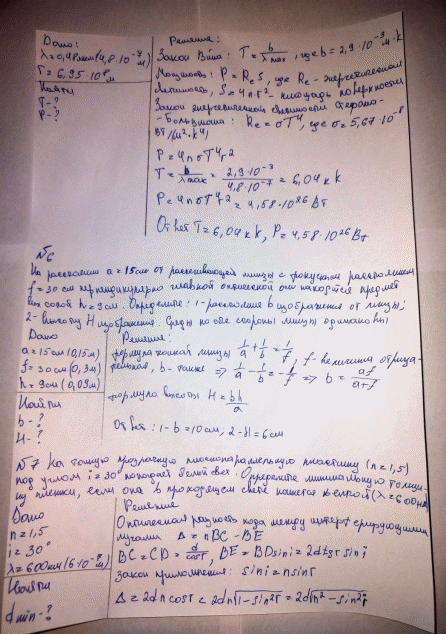 Дано:
λ=0,48мкм(4,8·10⁻⁷м)
r=6,95·10⁸м
Найти
T-?
P-?
Решение:
Закон Вина: T=b/λmax, где b=2,9·10⁻³ м·К
Мощность: P=ReS, где Re-энергетическая
светимость, S=4πr²-площадь поверхности
Закон энергетической светимости Стефано-
-Больцмана: Re=σT⁴, где σ=5,67·10⁻⁸
Вт/(м²·К⁴)
P=4πσT⁴r²
T=b/λmax=2,9·10⁻³/4,8·10⁻⁷=6,04кК
P=4πσT⁴r²=4,58·10²⁶Вт
Ответ T=6,04кК, P=4,58·10²⁶Вт
№6
На расстоянии a=15см от рассеивающей линзы с фокусным расстоянием
f=30см перпендикулярно главной оптической оси находится предмет
высотой h=9см. Определите: 1-расстояние b изображения от линзы;
2-высоту H изображения. Среды по обе стороны линзы одинаковы
Дано
a=15см(0,15м)
f=30см(0,3м)
h=9см(0,09м)
Найти
b-?
H-?
Решение:
формула тонкой линзы 1/a+1/b=1/f, f-величина отрица-
тельная, b-также ⇒ 1/a-1/b=-1/f ⇒ b=af/a+f
формула высоты H=bh/a
Ответ: 1-b=10см, 2-H=6см
№7 На тонкую прозрачную плоскопараллельную пластину (n=1,5)
под углом i=30° попадает белый свет. Определите минимальную толщи-
ну пленки, если она в проходящем свете кажется желтой(λ=600нм)
Дано
n=1,5
i=30°
λ=600нм(6·10⁻⁷м)
Найти
dmin-?
Решение
Оптическая разность хода между интерферирующими
лучами Δ=nBC-BE
BC=CD=d/cosr, BE=BDsini=2dtgr sini
Закон преломления: sini=nsinr
Δ=2dncosr=2dn√1-sin²r=2d√n²-sin²i